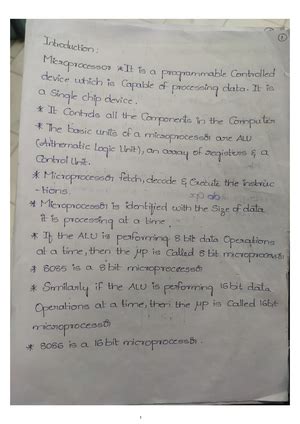 1
Introduction :
Microprocessor * It is a programmable Controlled
device which is Capable of processing data. It is
a Single chip device.
* It Controls all the Components in the Computer
* The basic units of a microprocessor are ALU
(Arithmatic Logic Unit), an array of registers & a
Control Unit.
* Microprocessor fetch, decode & Execute the instruc
-tions.
* Microprocessor is identified with the Size of data
it is processing at a time.
* If the ALU is performing 8 bit data Operations
at a time, then the μp is Called 8 bit microprocessor
* 8085 is a 8 bit microprocessor
* Similarly if the ALU is performing 16 bit data
Operations at a time, then the μp is Called 16 bit
microprocessor
* 8086 is a 16 bit microprocessor.